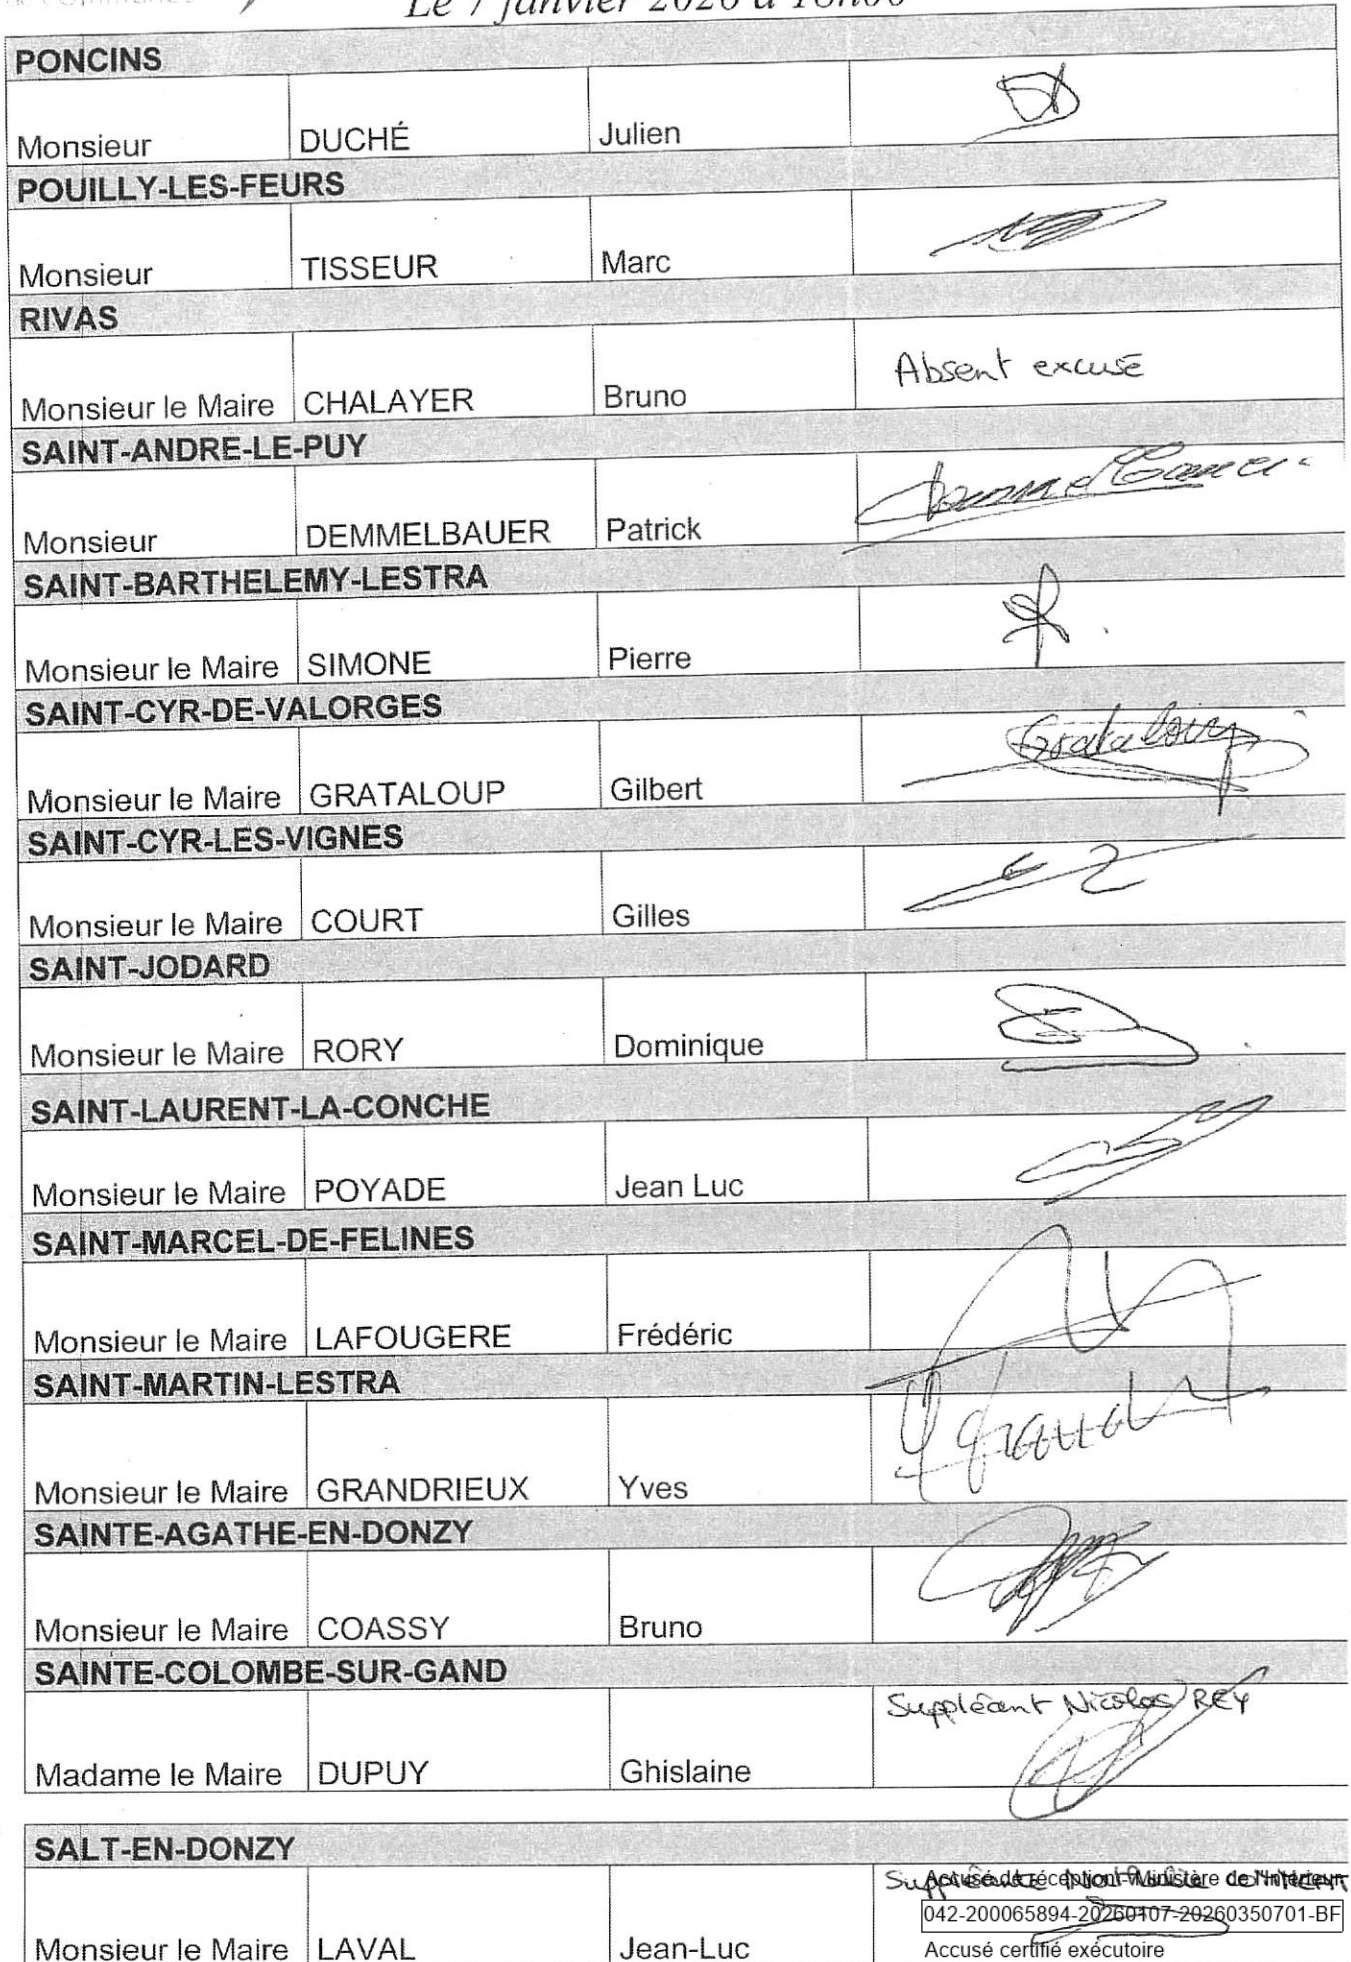 Le 7 janvier 2026 à 18h00
PONCINS
Monsieur DUCHÉ Julien
POUILLY-LES-FEURS
Monsieur TISSEUR Marc
RIVAS
Monsieur le Maire CHALAYER Bruno Absent excusé
SAINT-ANDRE-LE-PUY
Monsieur DEMMELBAUER Patrick
SAINT-BARTHELEMY-LESTRA
Monsieur le Maire SIMONE Pierre
SAINT-CYR-DE-VALORGES
Monsieur le Maire GRATALOUP Gilbert Grataloup
SAINT-CYR-LES-VIGNES
Monsieur le Maire COURT Gilles
SAINT-JODARD
Monsieur le Maire RORY Dominique
SAINT-LAURENT-LA-CONCHE
Monsieur le Maire POYADE Jean Luc
SAINT-MARCEL-DE-FELINES
Monsieur le Maire LAFOUGERE Frédéric
SAINT-MARTIN-LESTRA
Monsieur le Maire GRANDRIEUX Yves
SAINTE-AGATHE-EN-DONZY
Monsieur le Maire COASSY Bruno
SAINTE-COLOMBE-SUR-GAND
Suppléant Nicolas REY
Madame le Maire DUPUY Ghislaine
SALT-EN-DONZY
Suppléante Nathalie
Accusé de réception - Ministère de l'Intérieur
042-200065894-20260107-20260350701-BF
Monsieur le Maire LAVAL Jean-Luc
Accusé certifié exécutoire